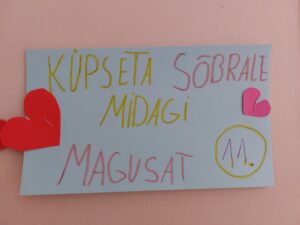 KÜPSETA SÕBRALE
MIDAGI
MAGUSAT
11.